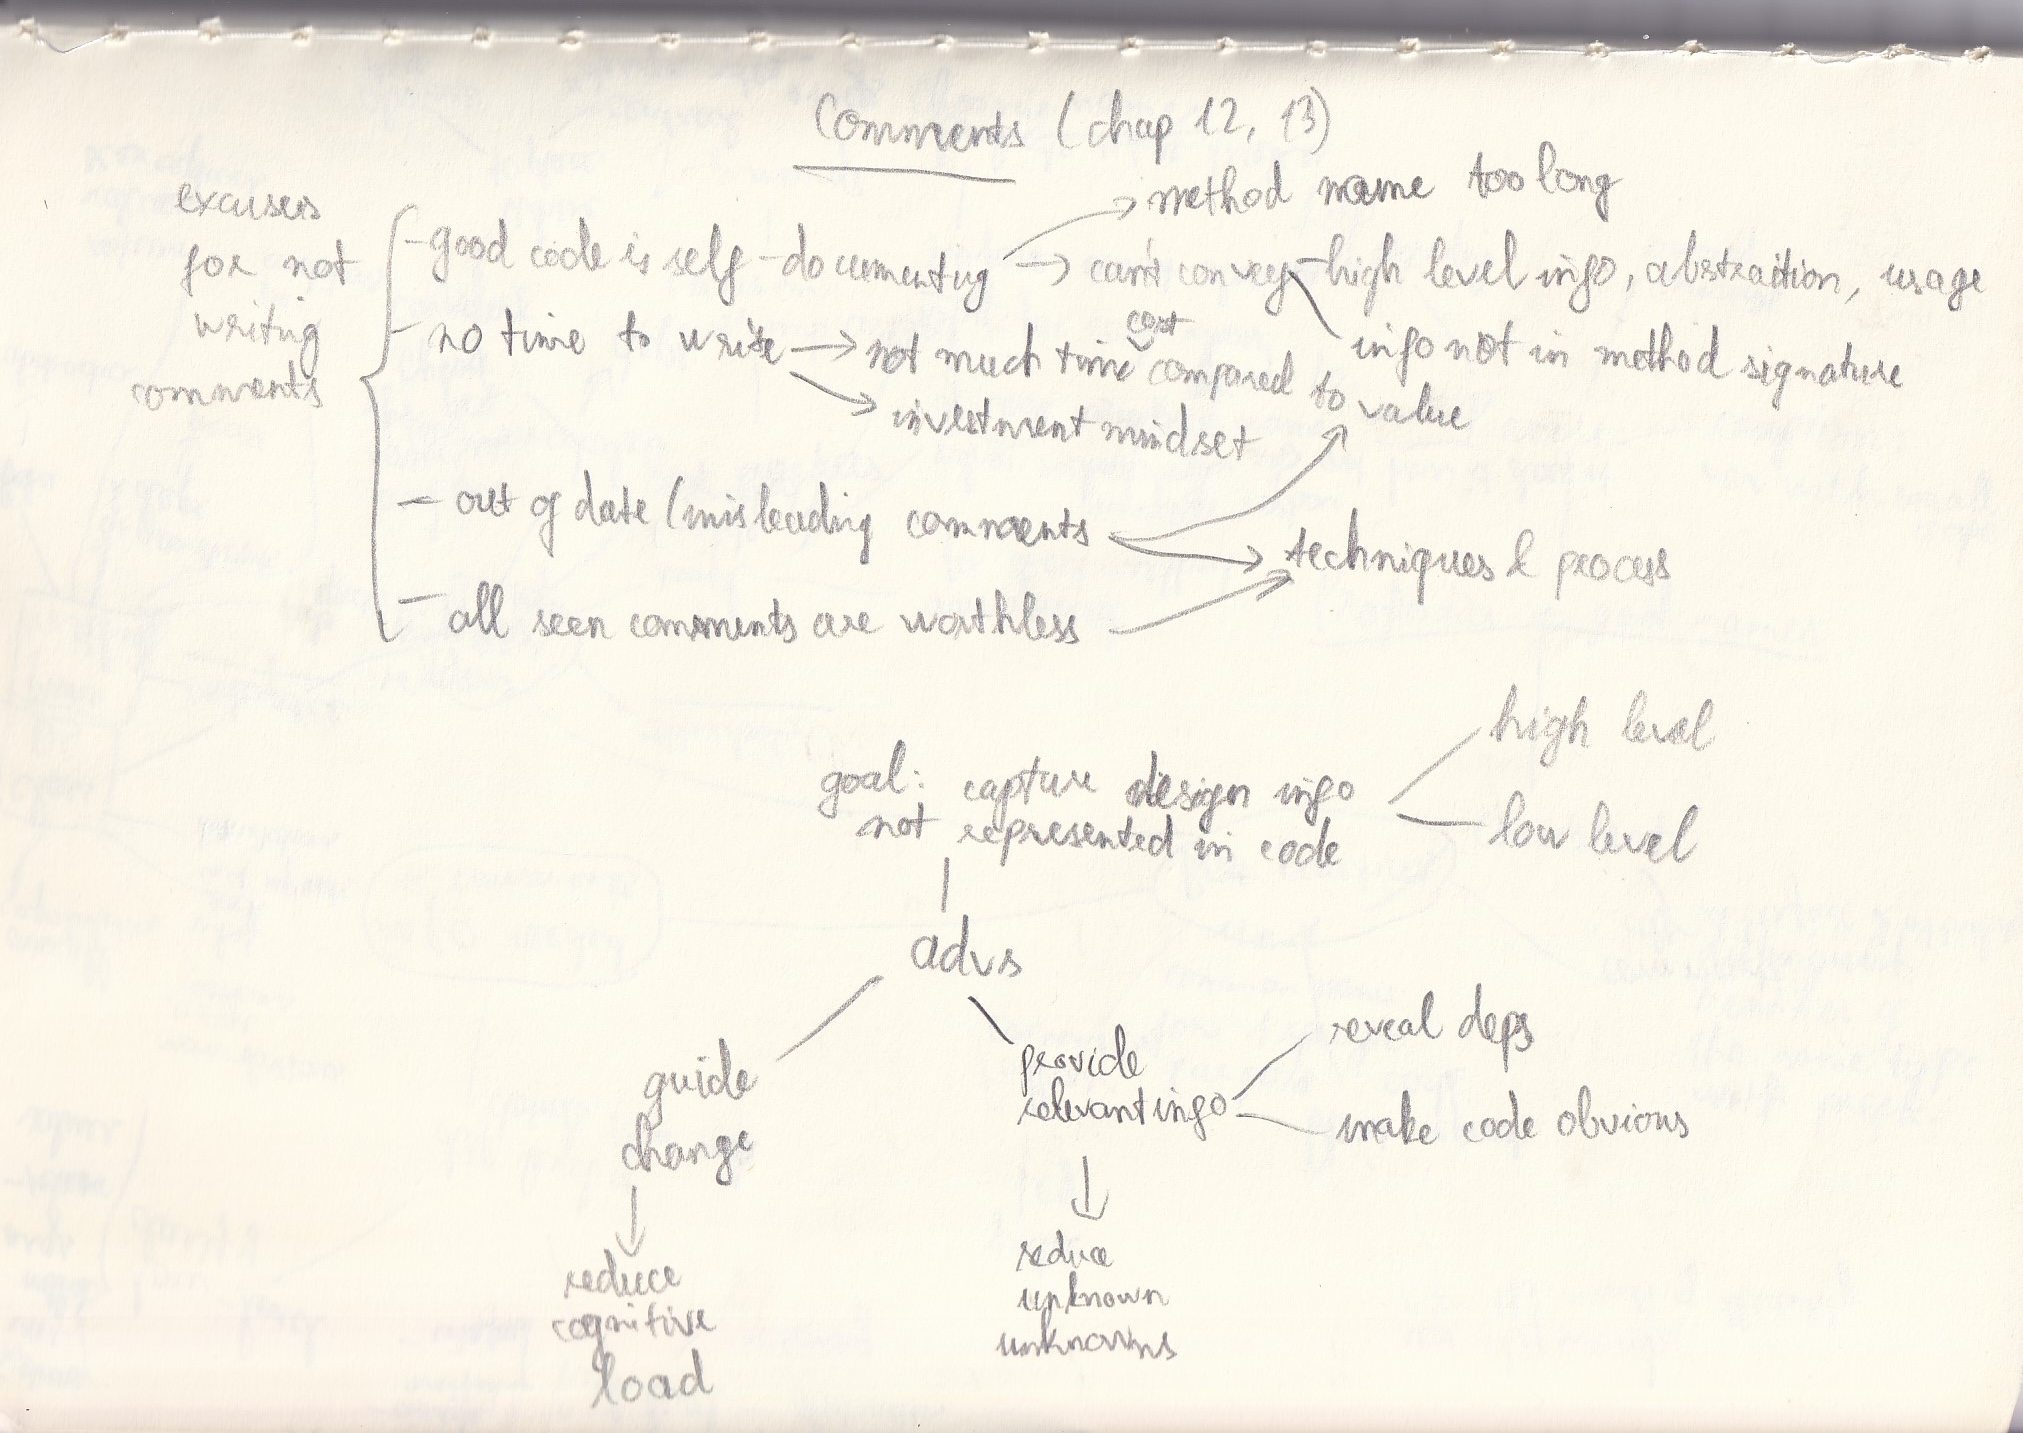 Comments (chap 12, 13)
excuses
for not
writing
comments
- good code is self-documenting
method name too long
can't convey
- high level info, abstraction, usage
info not in method signature
- no time to write
not much time cost compared to value
investment mindset
- out of date (misleading comments
techniques & process
- all seen comments are worthless
goal: capture design info
not represented in code
high level
low level
advs
guide
change
reduce
cognitive
load
provide
relevant info
reveal deps
make code obvious
reduce
unknown
unknowns